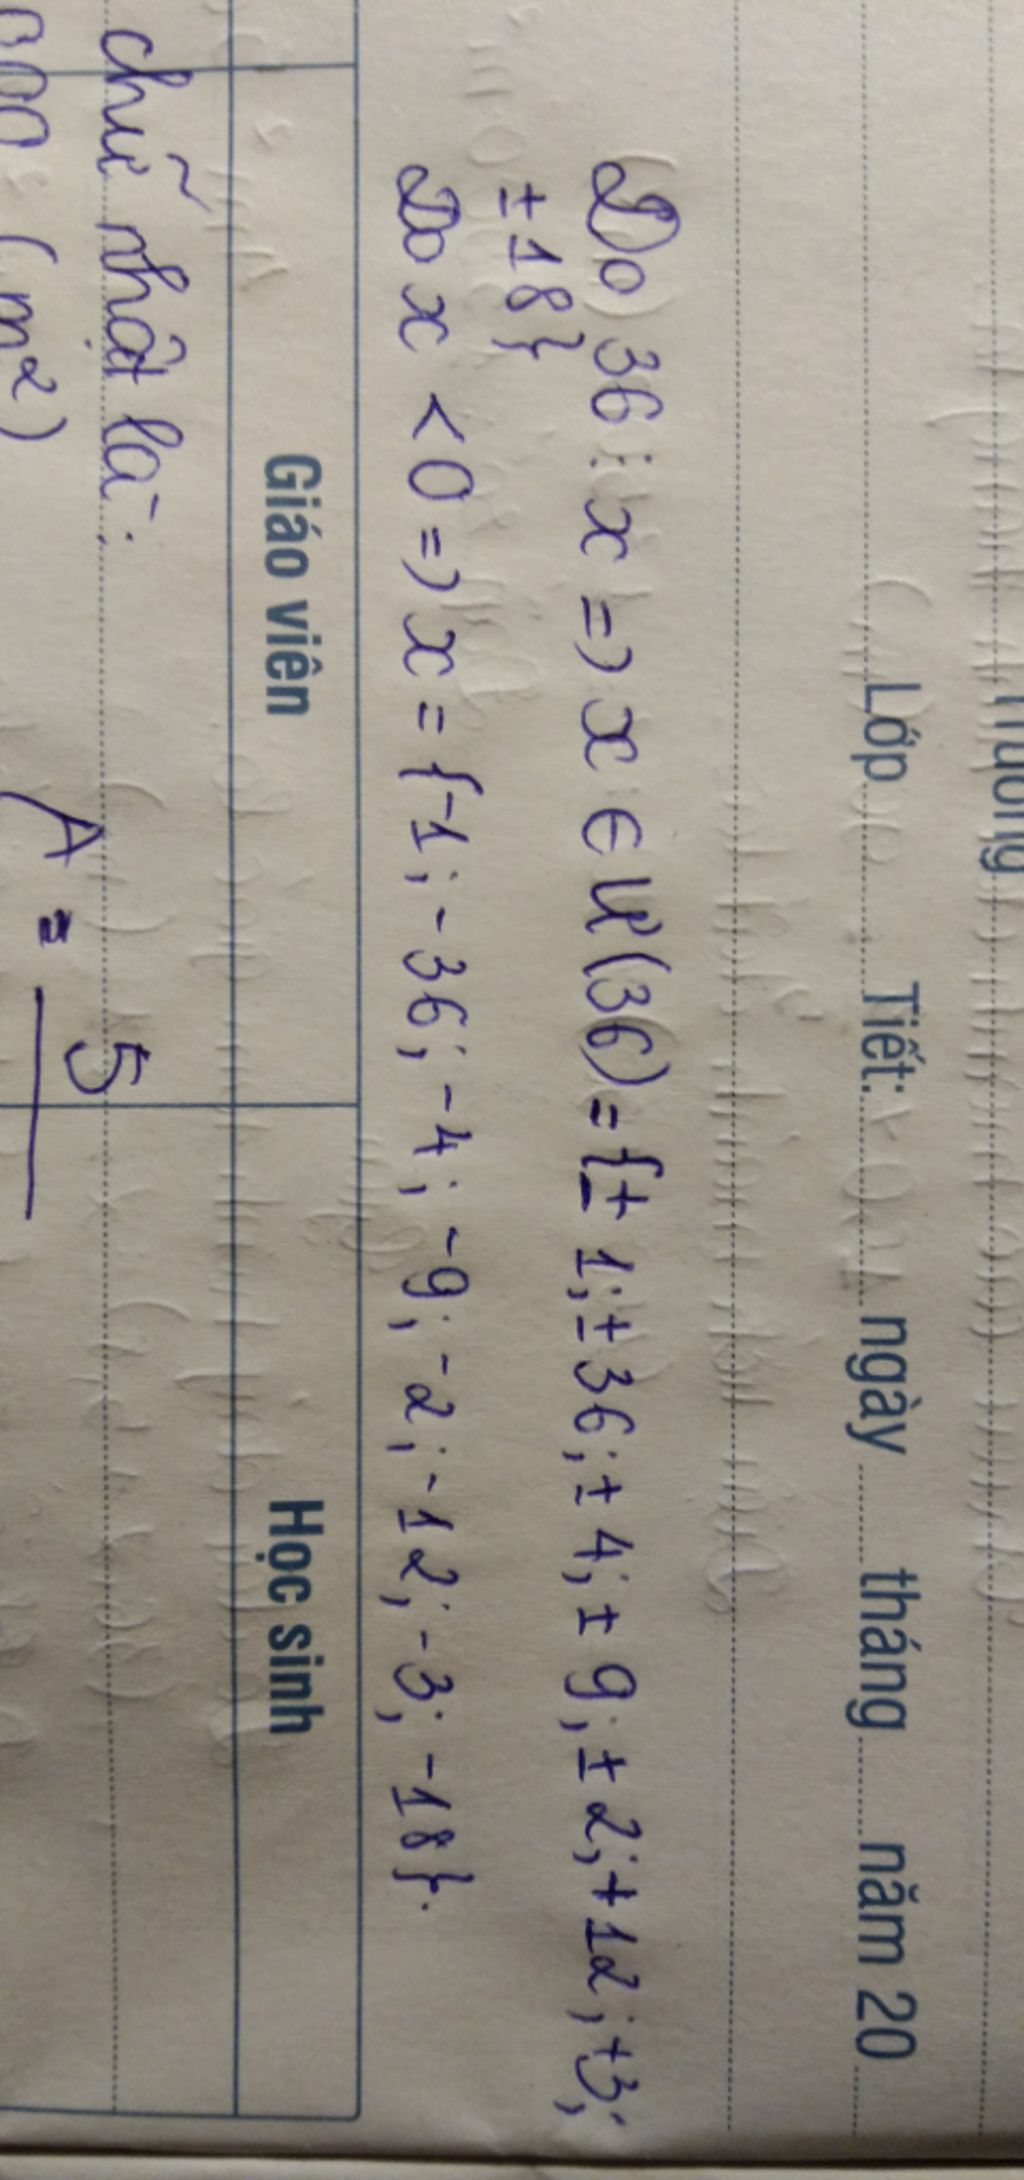 Trường
Lớp Tiết: ngày tháng năm 20
Do 36 ⋮ x => x ∈ Ư(36) = {± 1; ± 36; ± 4; ± 9; ± 2; +12; +3;
± 18}
Do x < 0 => x = {-1; -36; -4; -9; -2; -12; -3; -18}.
Giáo viên Học sinh
chữ nhật là:
(m²)
A = 5